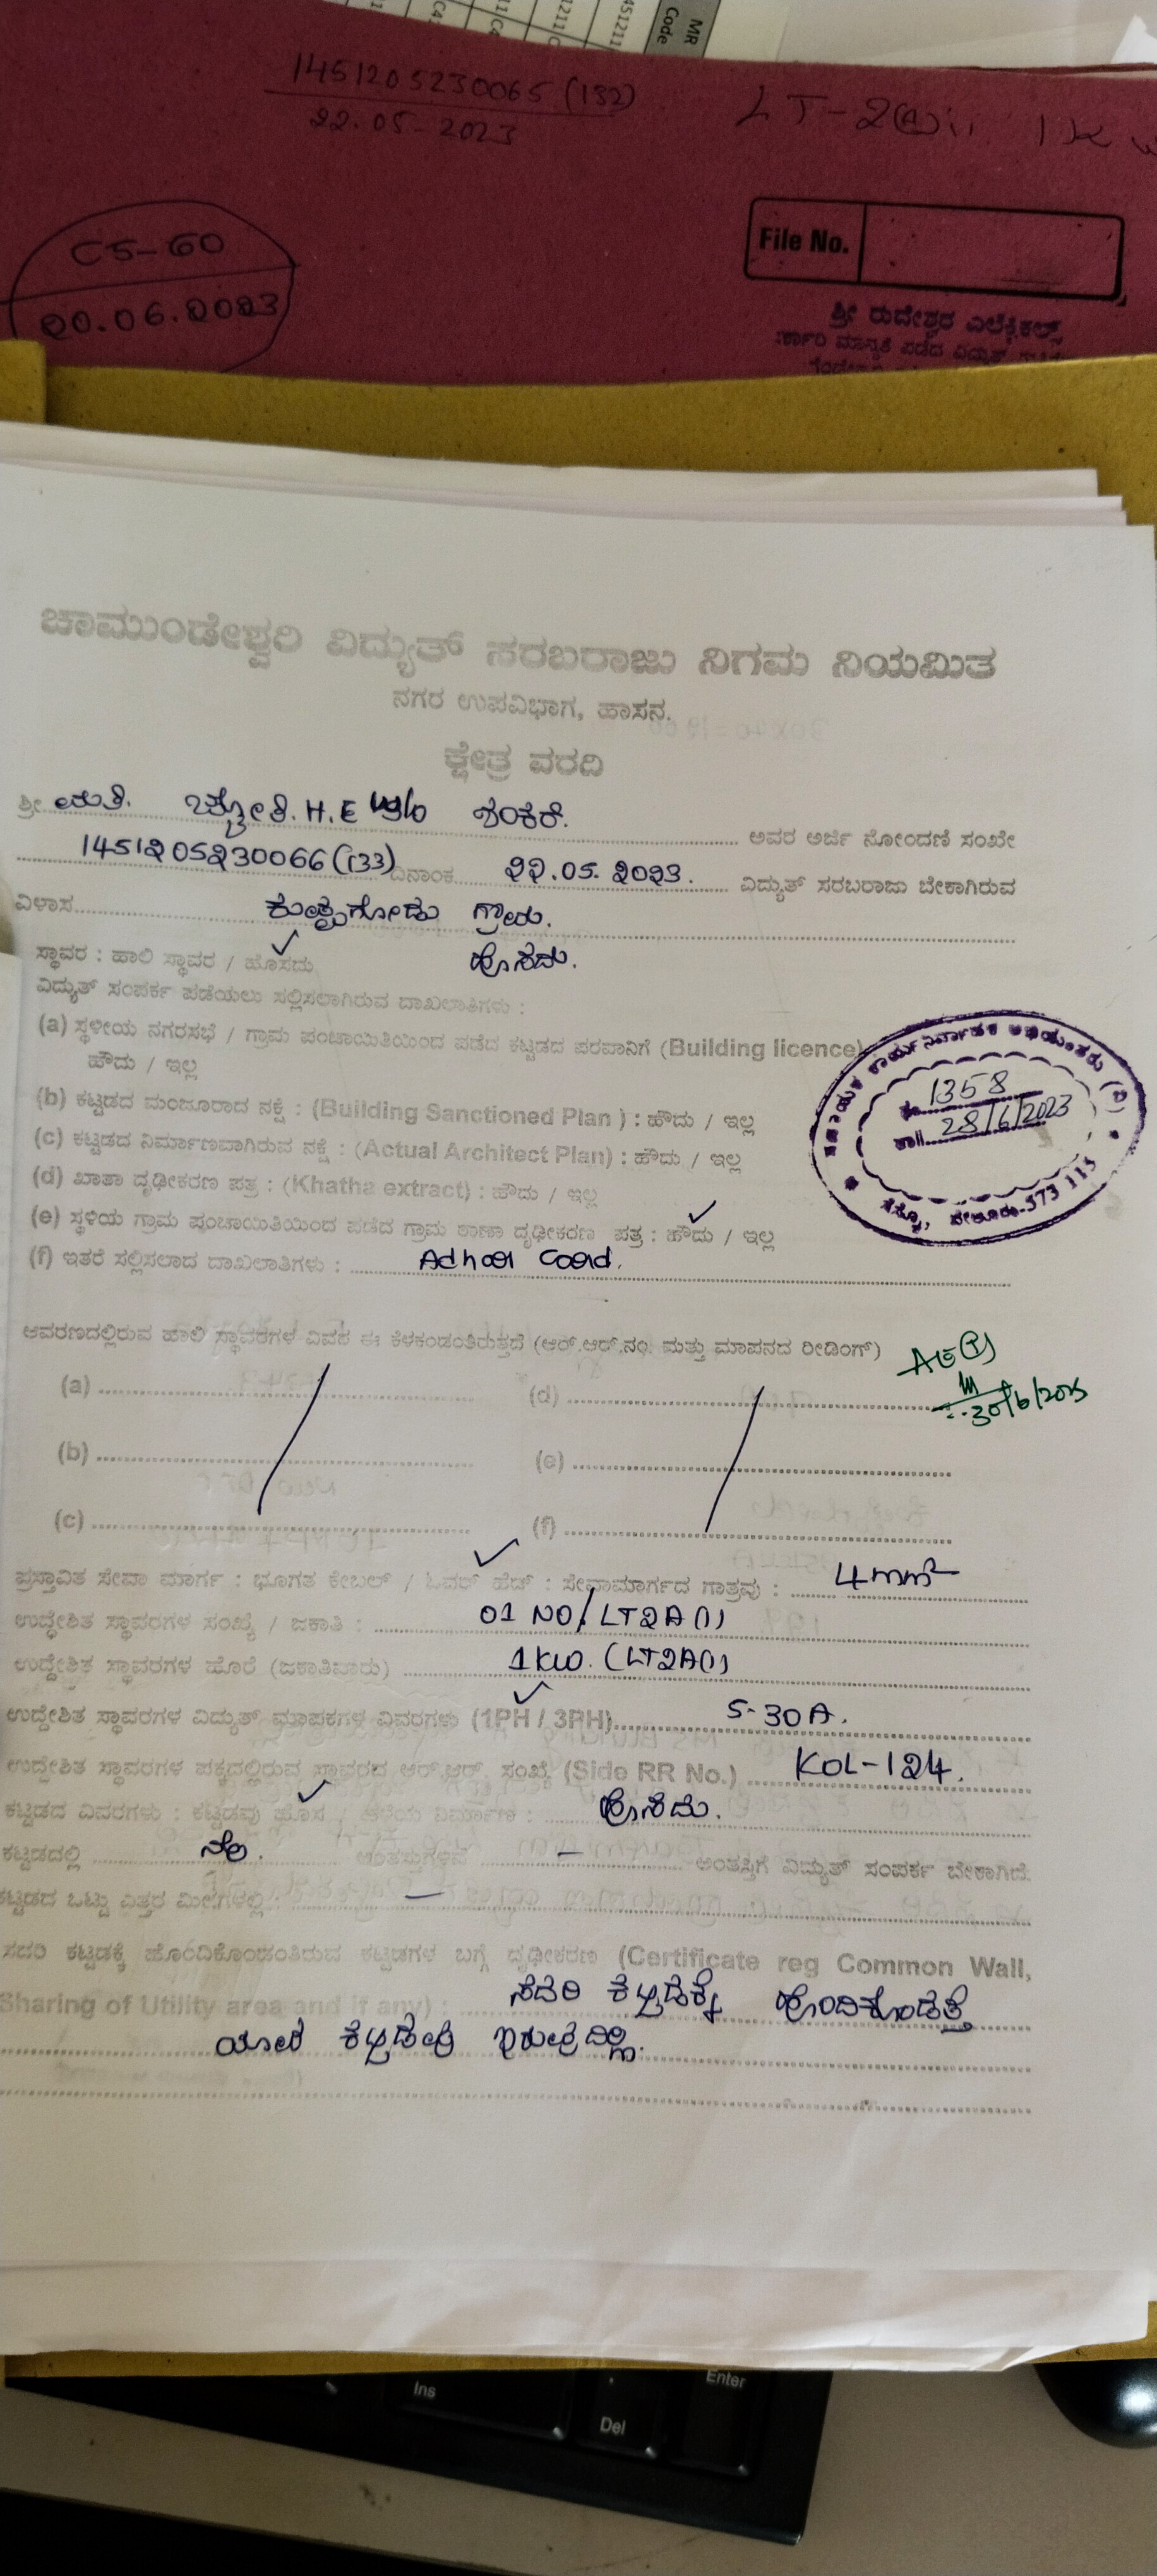 MR
Code
1451205230065 (132)
22.05-2023
LT-2(a)ii 1K
C5-60
20.06.2023
File No.
ಶ್ರೀ ರುದ್ರೇಶ್ವರ ಎಲೆಕ್ಟ್ರಿಕಲ್ಸ್
ಚಾಮುಂಡೇಶ್ವರಿ ವಿದ್ಯುತ್ ಸರಬರಾಜು ನಿಗಮ ನಿಯಮಿತ
ನಗರ ಉಪವಿಭಾಗ, ಹಾಸನ.
ಕ್ಷೇತ್ರ ವರದಿ
ಶ್ರೀ ಮತಿ. ಜ್ಯೋತಿ. H.E W/o ಶಂಕರ. ಅವರ ಅರ್ಜಿ ನೋಂದಣಿ ಸಂಖೇ
1451205230066 (133) ದಿನಾಂಕ 22.05.2023. ವಿದ್ಯುತ್ ಸರಬರಾಜು ಬೇಕಾಗಿರುವ
ವಿಳಾಸ ಕುಪ್ಪಗೋಡು ಗ್ರಾಮ.
ಸ್ಥಾವರ : ಹಾಲಿ ಸ್ಥಾವರ / ಹೊಸದು ಹೊಸದು.
ವಿದ್ಯುತ್ ಸಂಪರ್ಕ ಪಡೆಯಲು ಸಲ್ಲಿಸಲಾಗಿರುವ ದಾಖಲಾತಿಗಳು :
(a) ಸ್ಥಳೀಯ ನಗರಸಭೆ / ಗ್ರಾಮ ಪಂಚಾಯಿತಿಯಿಂದ ಪಡೆದ ಕಟ್ಟಡದ ಪರವಾನಿಗೆ (Building licence) :
ಹೌದು / ಇಲ್ಲ
(b) ಕಟ್ಟಡದ ಮಂಜೂರಾದ ನಕ್ಷೆ : (Building Sanctioned Plan ) : ಹೌದು / ಇಲ್ಲ
(c) ಕಟ್ಟಡದ ನಿರ್ಮಾಣವಾಗಿರುವ ನಕ್ಷೆ : (Actual Architect Plan) : ಹೌದು / ಇಲ್ಲ
(d) ಖಾತಾ ದೃಢೀಕರಣ ಪತ್ರ : (Khatha extract) : ಹೌದು / ಇಲ್ಲ
(e) ಸ್ಥಳಿಯ ಗ್ರಾಮ ಪಂಚಾಯಿತಿಯಿಂದ ಪಡೆದ ಗ್ರಾಮ ಠಾಣಾ ದೃಢೀಕರಣ ಪತ್ರ : ಹೌದು / ಇಲ್ಲ
(f) ಇತರೆ ಸಲ್ಲಿಸಲಾದ ದಾಖಲಾತಿಗಳು : Adhar Card.
ಸಹಾಯಕ ಕಾರ್ಯನಿರ್ವಾಹಕ ಅಭಿಯಂತರರು (ವಿ)
1358
28/6/2023
ಸೆಸ್ಕಾಂ, ಬೇಲೂರು-573 115
ಆವರಣದಲ್ಲಿರುವ ಹಾಲಿ ಸ್ಥಾವರಗಳ ವಿವರ ಈ ಕೆಳಕಂಡಂತಿರುತ್ತದೆ (ಆರ್.ಆರ್.ನಂ. ಮತ್ತು ಮಾಪನದ ರೀಡಿಂಗ್)
AE(T)
30/6/2023
(a) (d)
(b) (e)
(c) (f)
ಪ್ರಸ್ತಾವಿತ ಸೇವಾ ಮಾರ್ಗ : ಭೂಗತ ಕೇಬಲ್ / ಓವರ್ ಹೆಡ್ : ಸೇವಾಮಾರ್ಗದ ಗಾತ್ರವು : 4mm²
ಉದ್ದೇಶಿತ ಸ್ಥಾವರಗಳ ಸಂಖ್ಯೆ / ಜಕಾತಿ : 01 NO/LT2A(1)
ಉದ್ದೇಶಿತ ಸ್ಥಾವರಗಳ ಹೊರೆ (ಜಕಾತಿವಾರು) 1KW. (LT2A(1)
ಉದ್ದೇಶಿತ ಸ್ಥಾವರಗಳ ವಿದ್ಯುತ್ ಮಾಪಕಗಳ ವಿವರಗಳು (1PH / 3PH) 5-30A.
ಉದ್ದೇಶಿತ ಸ್ಥಾವರಗಳ ಪಕ್ಕದಲ್ಲಿರುವ ಸ್ಥಾವರದ ಆರ್.ಆರ್. ಸಂಖ್ಯೆ (Side RR No.) KOL-124.
ಕಟ್ಟಡದ ವಿವರಗಳು : ಕಟ್ಟಡವು ಹೊಸ / ಹಳೆಯ ನಿರ್ಮಾಣ : ಹೊಸದು.
ಕಟ್ಟಡದಲ್ಲಿ ನೆಲ. ಅಂತಸ್ತುಗಳಿವೆ – ಅಂತಸ್ತಿಗೆ ವಿದ್ಯುತ್ ಸಂಪರ್ಕ ಬೇಕಾಗಿದೆ.
ಕಟ್ಟಡದ ಒಟ್ಟು ಎತ್ತರ ಮೀಟರ್‌ಗಳಲ್ಲಿ –
ಸದರಿ ಕಟ್ಟಡಕ್ಕೆ ಹೊಂದಿಕೊಂಡಂತಿರುವ ಕಟ್ಟಡಗಳ ಬಗ್ಗೆ ದೃಢೀಕರಣ (Certificate reg Common Wall,
Sharing of Utility area and if any) : ಸದರಿ ಕಟ್ಟಡಕ್ಕೆ ಹೊಂದಿಕೊಂಡತ್ತೆ
ಯಾವ ಕಟ್ಟಡವು ಇರುವುದಿಲ್ಲ.
Ins
Del
Enter